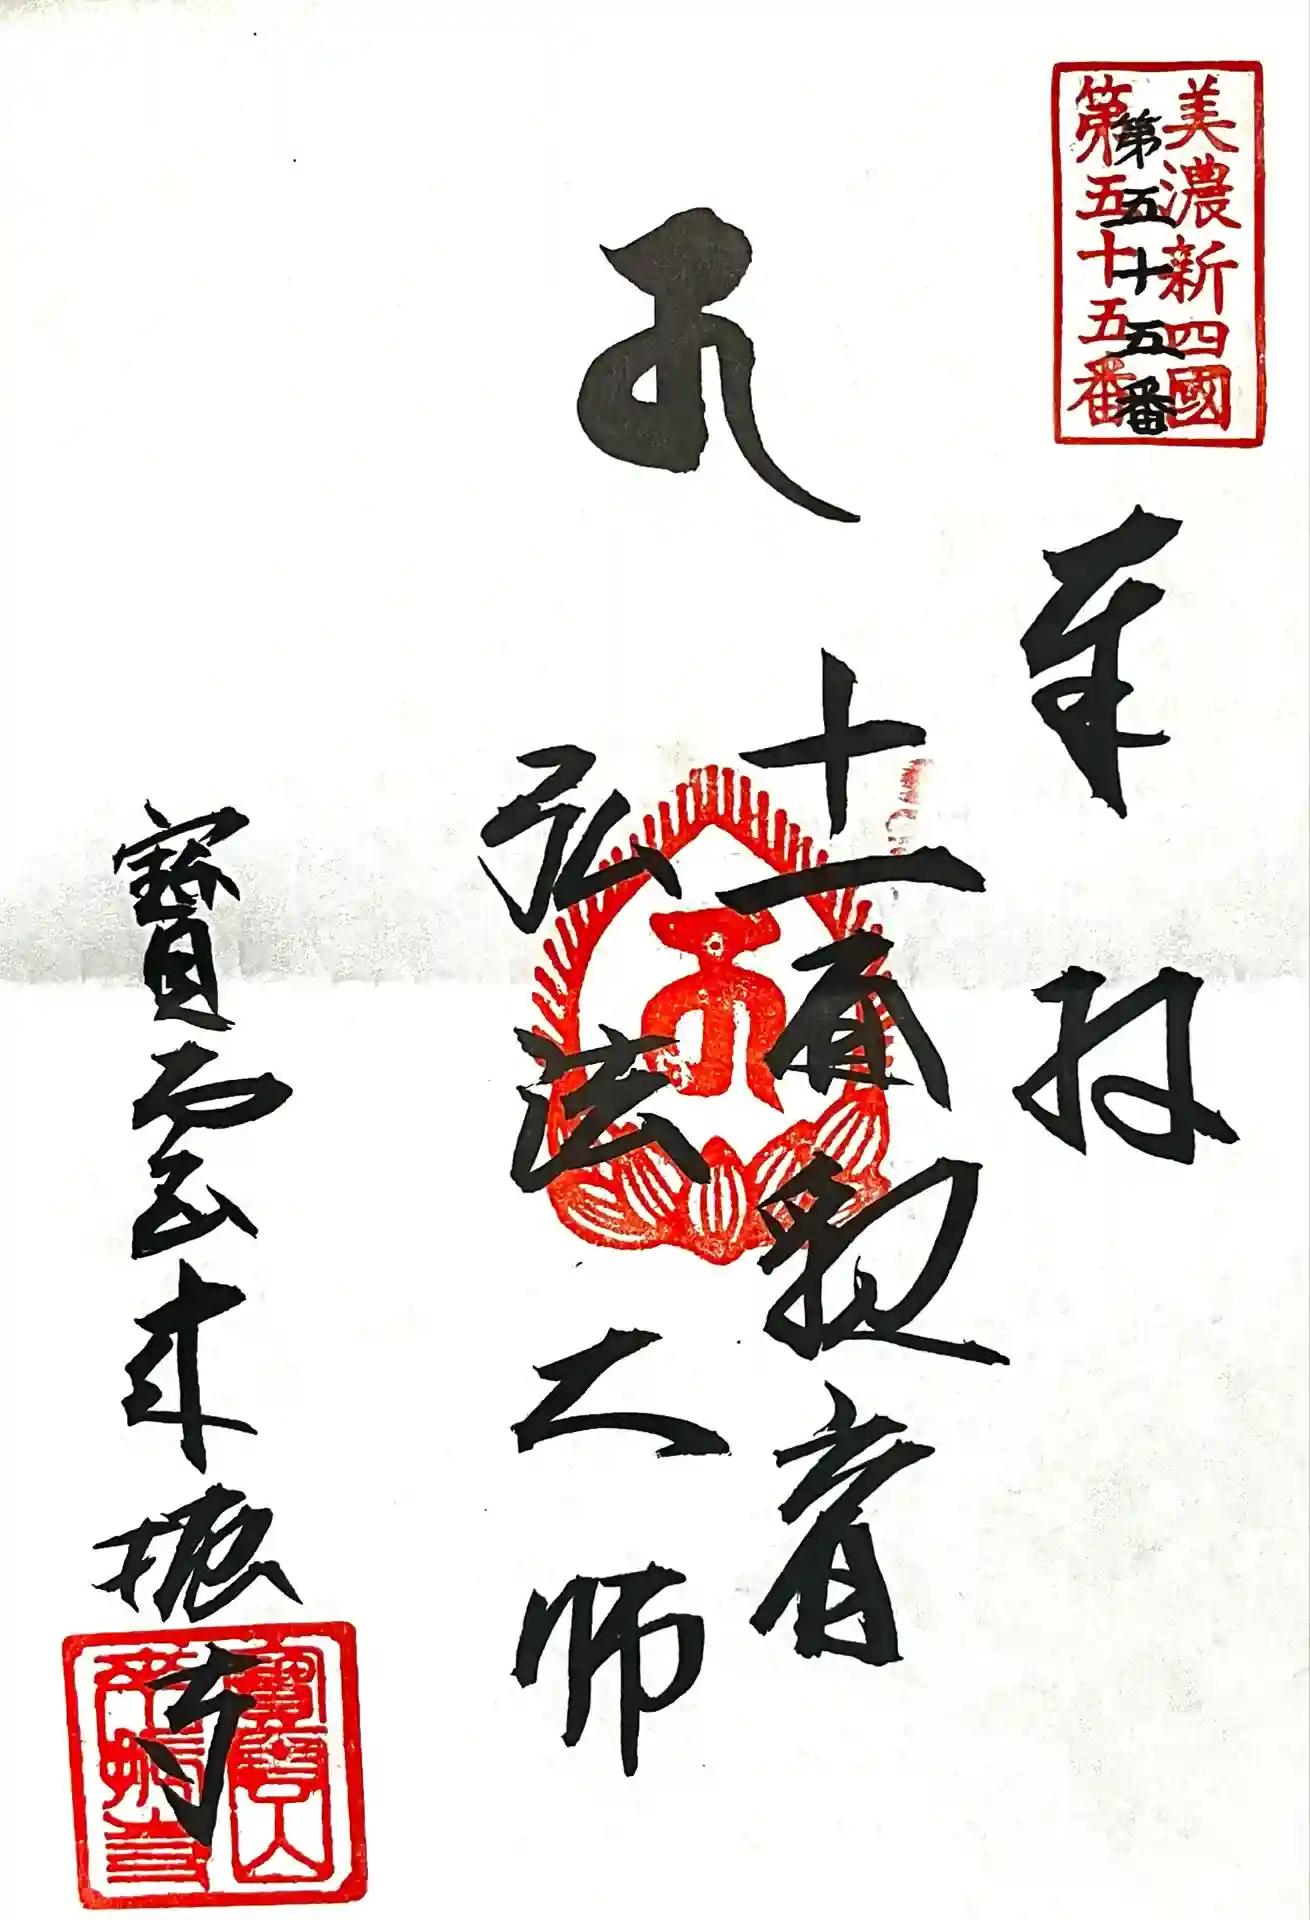 美濃新四國
第五十五番
第五十五番
奉拝
十一面観音
弘法大師
寶雲来振寺